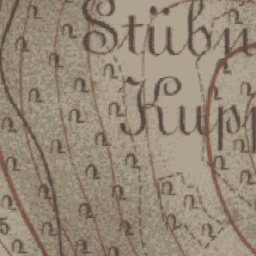 Stübn
Kupp
5